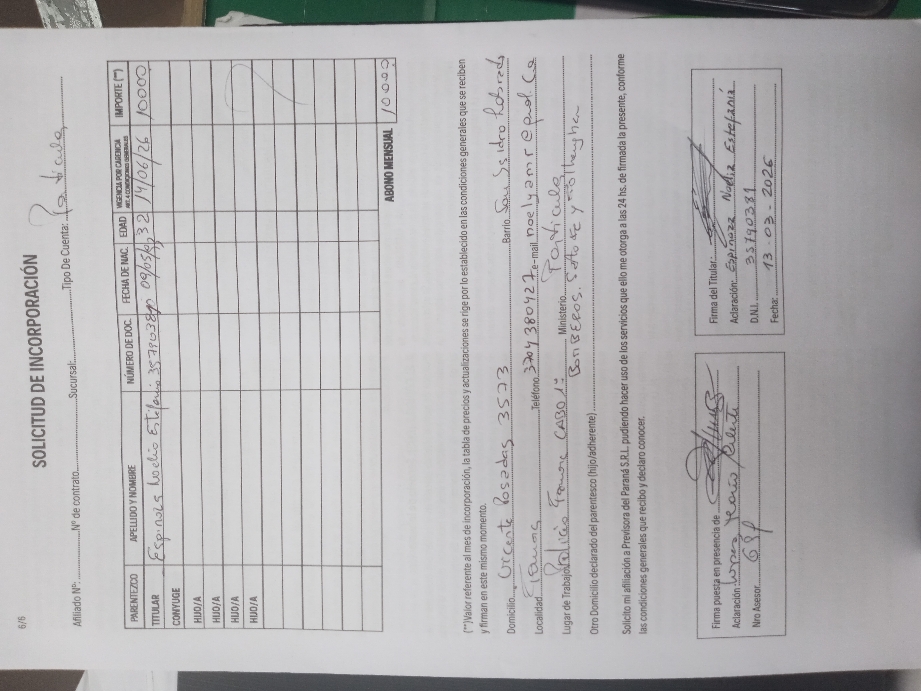 6/6
SOLICITUD DE INCORPORACIÓN
Afiliado Nº: Nº de contrato Sucursal: Tipo De Cuenta: Particular
PARENTEZCO APELLIDO Y NOMBRE NÚMERO DE DOC. FECHA DE NAC. EDAD VIGENCIA POR CARENCIA IMPORTE (**)
TITULAR Espinoza Noelia Estefania 32 14/06/26 10000
CONYUGE
HIJO/A
HIJO/A
HIJO/A
HIJO/A
ABONO MENSUAL 10000
(**)Valor referente al mes de incorporación, la tabla de precios y actualizaciones se rige por lo establecido en las condiciones generales que se reciben
y firman en este mismo momento.
Domicilio Posadas 3573 Barrio San Isidro
Localidad Teléfono 3704380427 e-mail
Lugar de Trabajo CABO 1º Ministerio
Bomberos
Otro Domicilio declarado del parentesco (hijo/adherente)
Solicito mi afiliación a Previsora del Paraná S.R.L. pudiendo hacer uso de los servicios que ello me otorga a las 24 hs. de firmada la presente, conforme
las condiciones generales que recibo y declaro conocer.
Firma puesta en presencia de
Aclaración:
Nro Asesor
Firma del Titular:
Aclaración: Espinoza Noelia Estefanía
D.N.I. 35790381
Fecha: 13-03-2026